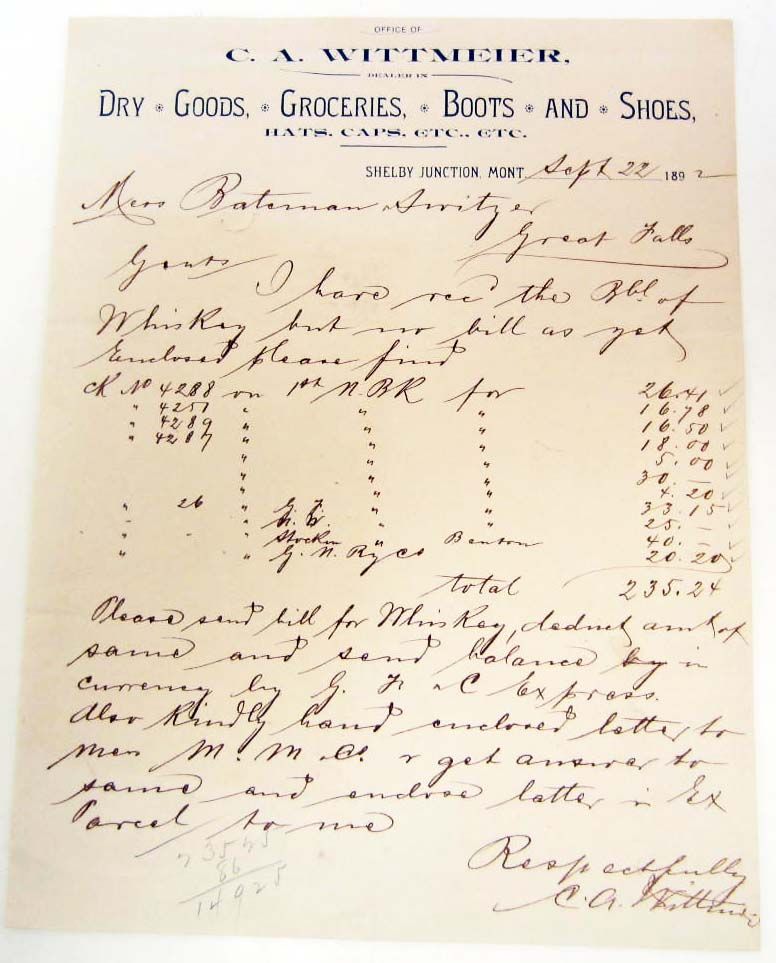 OFFICE OF
C. A. WITTMEIER,
DEALER IN
DRY GOODS, GROCERIES, BOOTS AND SHOES,
HATS, CAPS, ETC., ETC.
SHELBY JUNCTION, MONT. Sept 22 1892
Mess Bateman & Switzer
Great Falls
Gents
I have recd the Bbl of
Whiskey but no bill as yet
Enclosed please find
CK No 4288 on 1st N. BK for 26.41
" 4251 " " " 16.78
" 4289 " " " 16.50
" 4287 " " " 18.00
" " " 5.00
" " " 30.—
" " " 4.20
" 26 " G. F. " " 33.15
" " " " " 25.—
" " Stockm " Benton 40.—
" " G. N. Ry Co 20.20
total 235.24
Please send bill for Whiskey, deduct amt of
same and send balance by in
currency by G. F. & C Express.
Also Kindly hand enclosed letter to
Mess M. M. Co. & get answer to
same and enclose letter in Ex
Parcel to me
Respectfully
C. A. Wittmeier
235 45
86
149 25